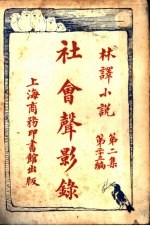 林譯小說
第二集
第二十三編
社會聲影錄
上海商務印書館出版